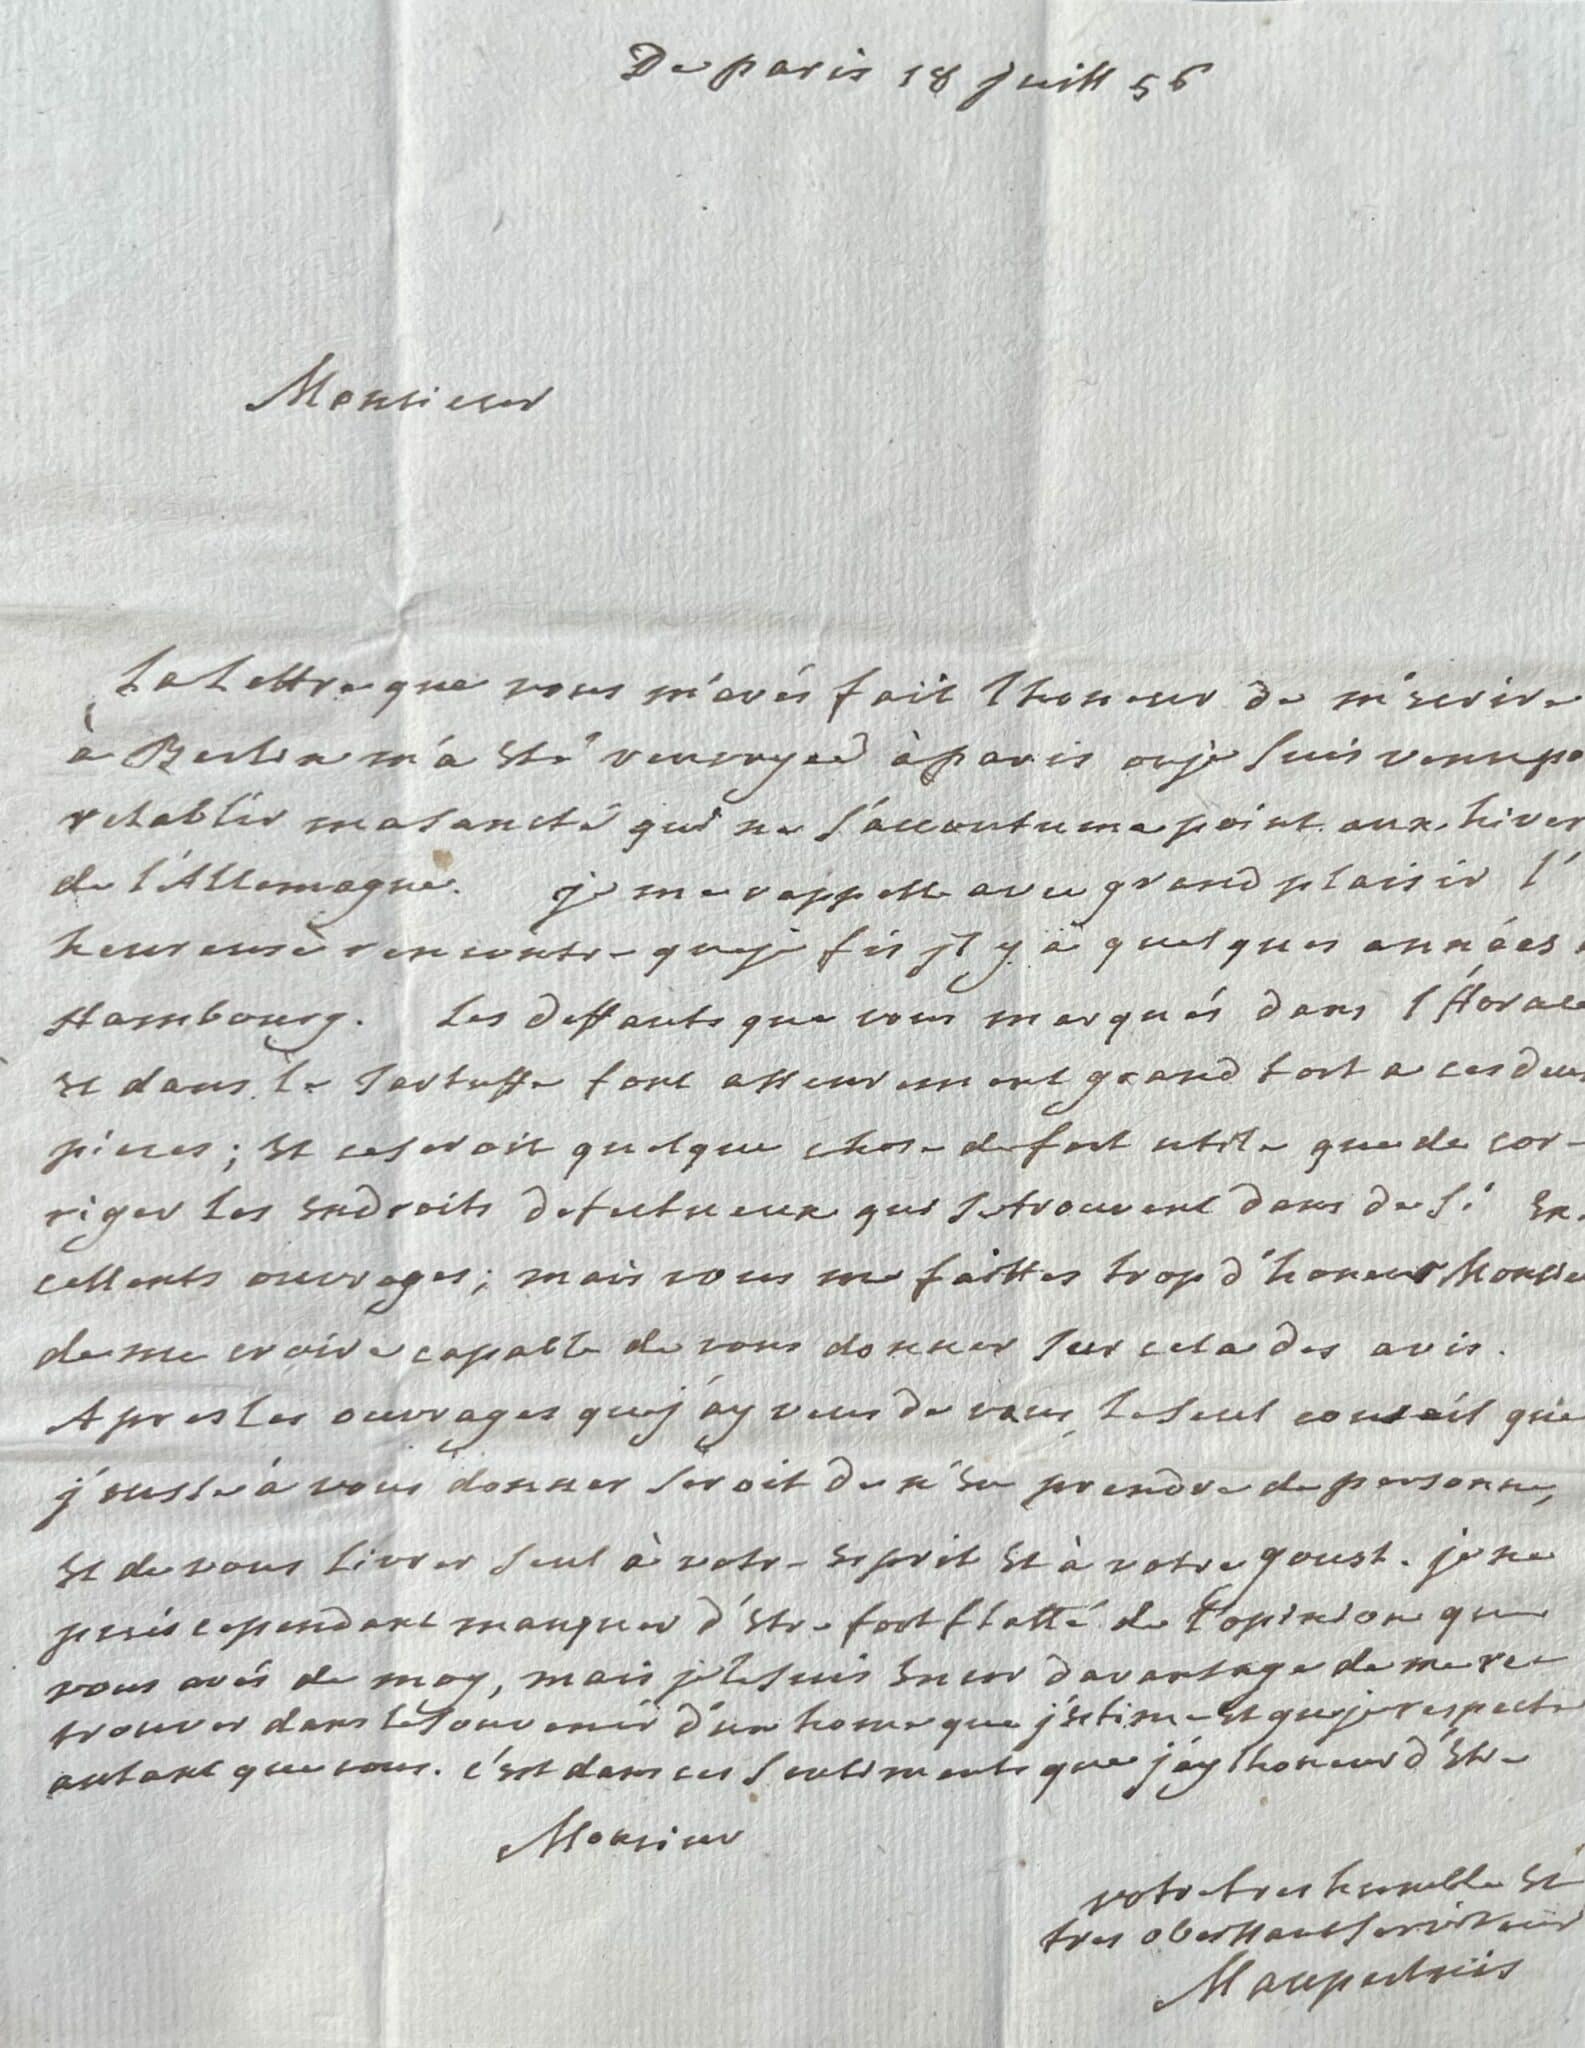 De paris 18 juill 56
Monsieur
La Lettre que vous m'avés fait l honeur de m'ecrire
à Berlin m'a eté renvoyeé à paris ou je suis venu po
retablir ma santé qui ne s'accoutume point aux hiver
de l'Allemagne. je me rappelle avec grand plaisir l'
heureuse rencontre que je fis jl y a quelques années
Hambourg. Les deffauts que vous marqués dans l Horace
et dans le Tartuffe font asseurement grand tort a ces deux
pieces; et ce seroit quelque chose de fort utile que de cor-
riger les endroits defectueux qui se trouvent dans de si ex-
cellents ouvrages; mais vous me faittes trop d'honeur Monsieu
de me croire capable de vous donner sur cela des avis.
Apres les ouvrages que j'ay veus de vous, le seul conseil que
j'eusse à vous donner seroit de n'en prendre de personne,
et de vous livrer seul à votre esprit et à votre goust. je ne
puis cependant manquer d'etre fort flatté de l'opinion que
vous avés de moy, mais je le suis encor davantage de me re-
trouver dans le souvenir d'un home que j'estime et que je respecte
autant que vous. c'est dans ces sentiments que j'ay l honeur d'etre
Monsieur
votre tres humble et
tres obeissant serviteur
Maupertuis